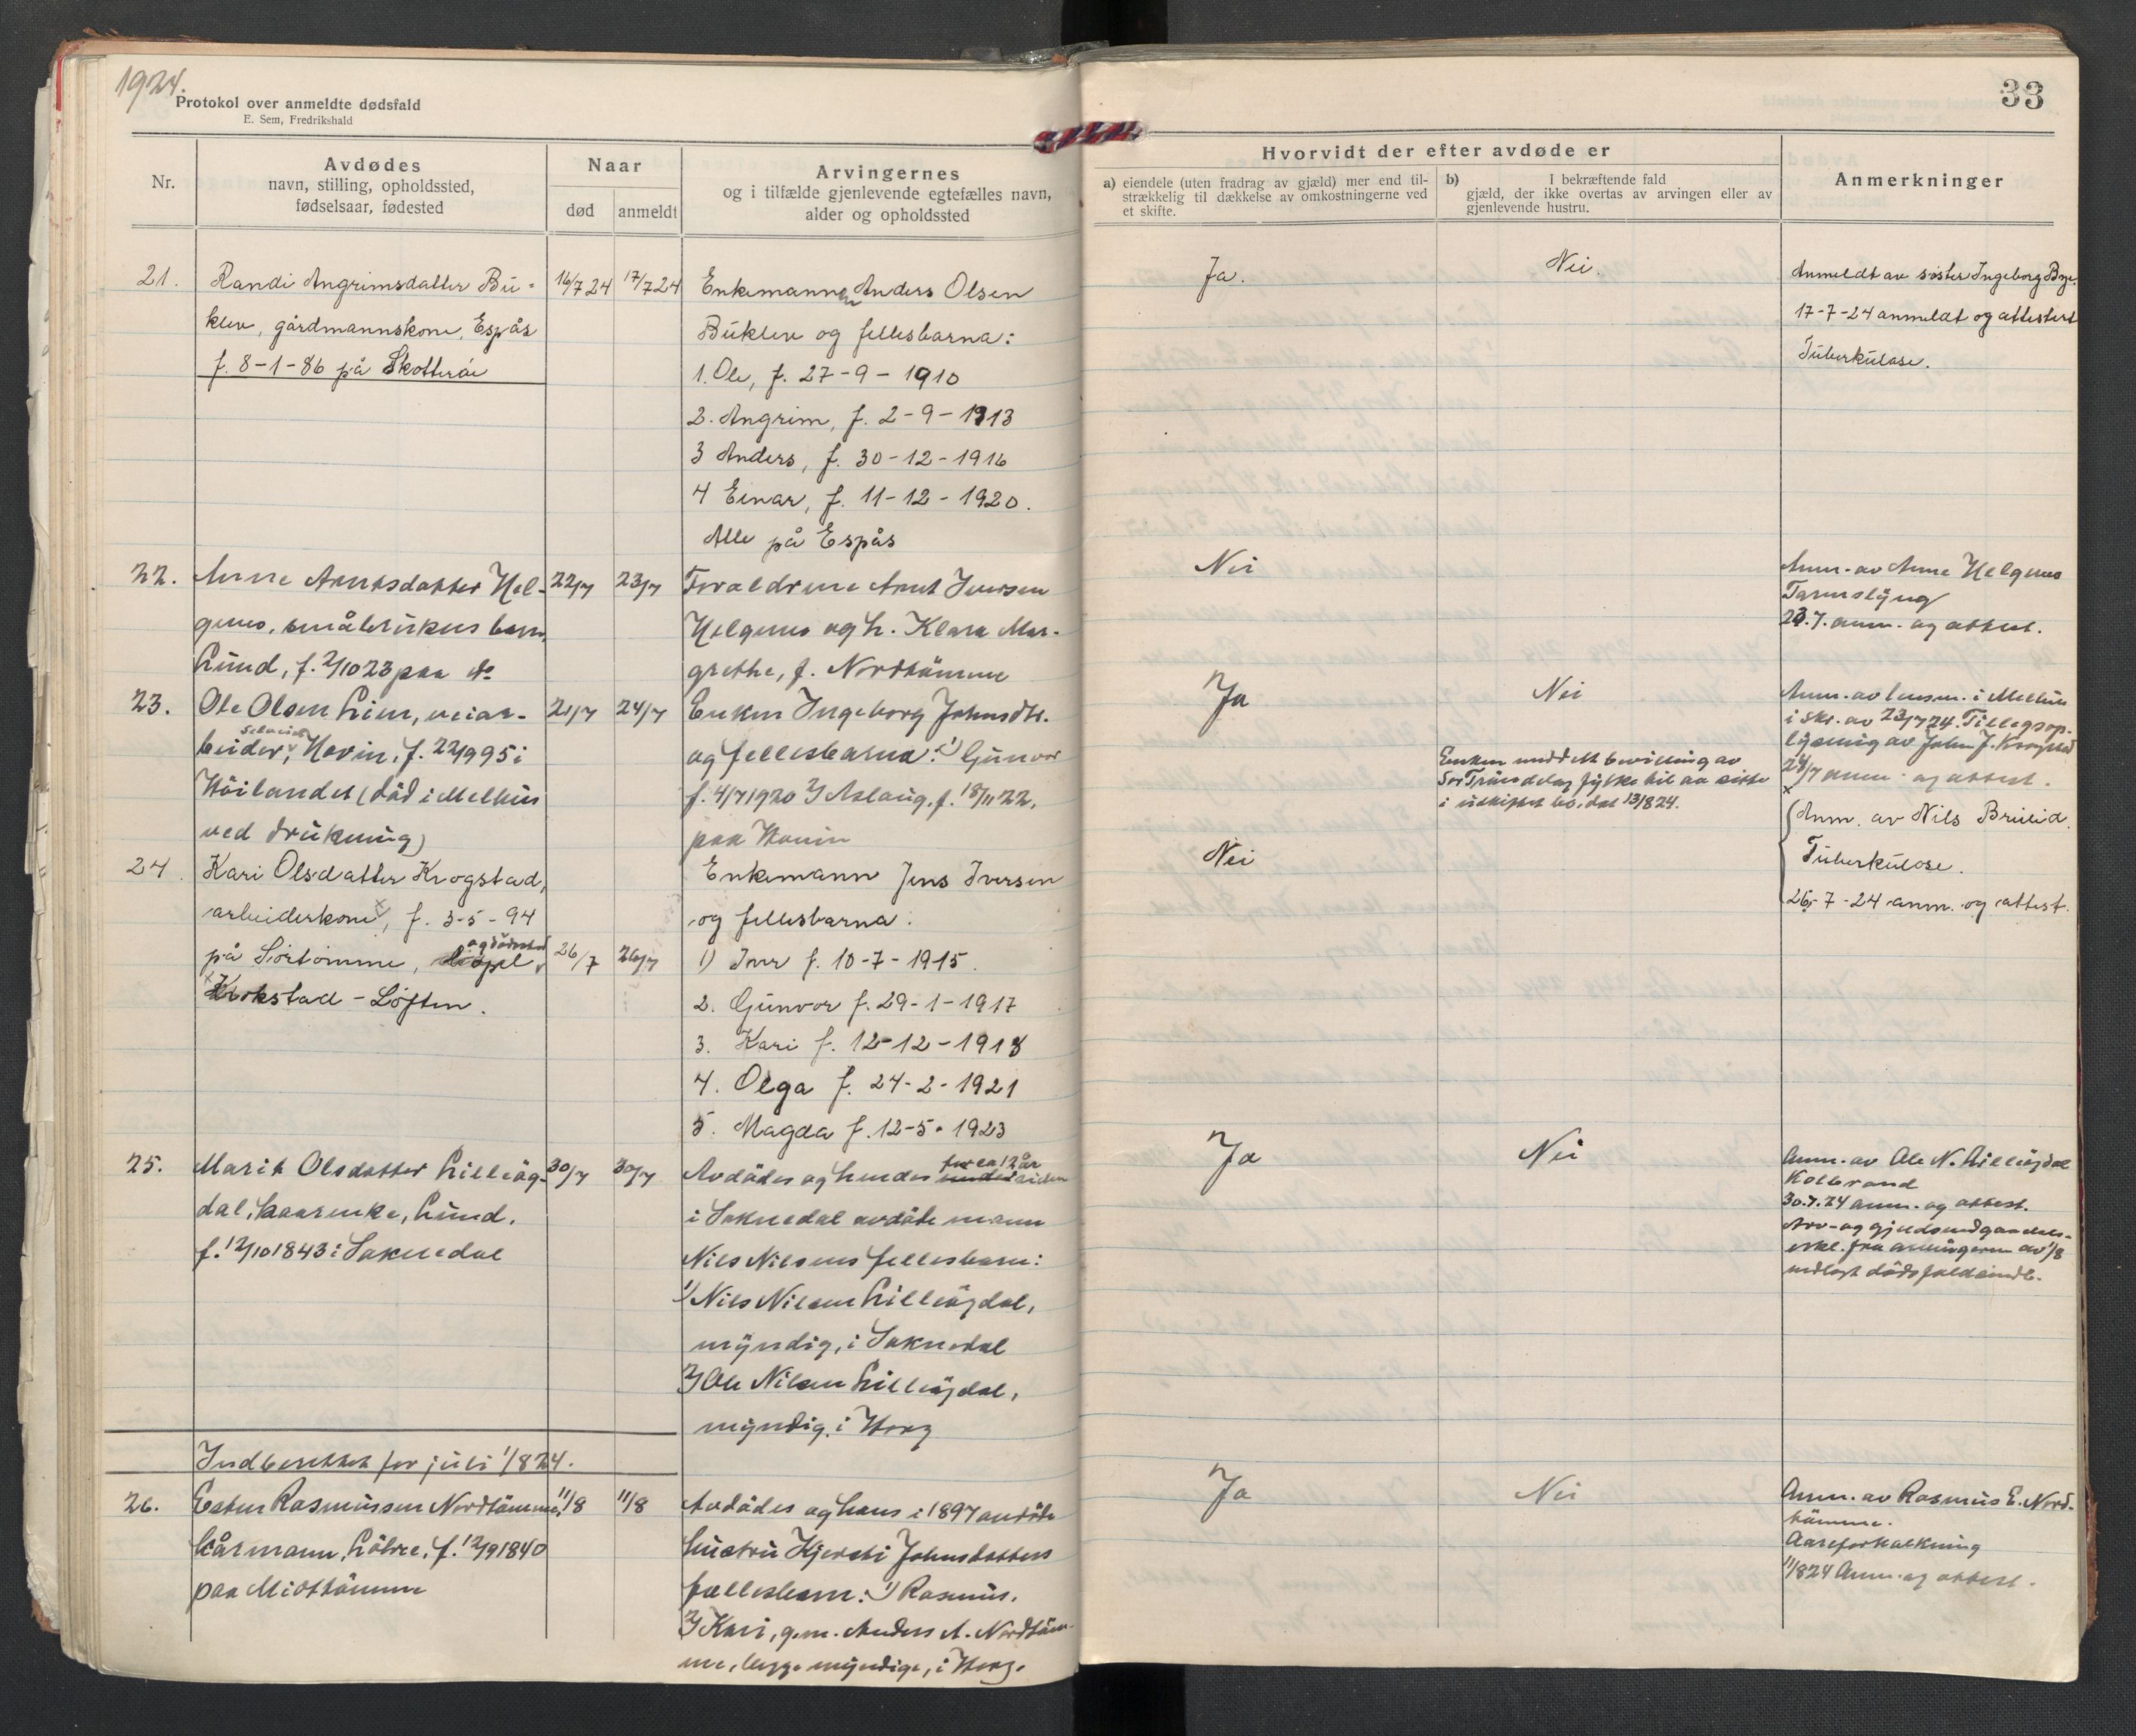 1924.
33
Protokol over anmeldte dødsfald
E. Sem, Fredrikshald
Nr.
Avdødes
navn, stilling, opholdssted,
fødselsaar, fødested
Naar
død
anmeldt
Arvingernes
og i tilfælde gjenlevende egtefælles navn,
alder og opholdssted
Hvorvidt der efter avdøde er
a) eiendele (uten fradrag av gjæld) mer end til-
strækkelig til dækkelse av omkostningerne ved
et skifte.
b) I bekræftende fald
gjæld, der ikke overtas av arvingen eller av
gjenlevende hustru.
Anmerkninger
21.
Randi Angrimsdatter Bu-
klev, gårdmannskone, Espås
f. 8-1-86 på Skotterøi
16/7 24
17/7 24
Enkemannen Anders Olsen
Buklev og fellesbarna:
1. Ole, f. 27-9-1910
2. Angrim, f. 2-9-1913
3 Anders, f. 30-12-1916
4 Einar, f. 11-12-1920.
Alle på Espås
Ja.
Nei.
Anmeldt av søster Ingeborg Bye.
17-7-24 anmeldt og attestert
Tuberkulose.
22.
Anne Arntsdatter Hel-
gemo, småbrukers barn,
Lund, f. 2/10 23 paa do
22/7
23/7
Foraldrene Arnt Iversen
Helgemo og h. Klara Mar-
grethe, f. Nordtømme
Nei
Anm. av Anne Helgemo
Tarmslyng
23.7. anm. og attest.
23.
Ole Olsen Lien, veiar-
beider, Hovin, f. 22/9 95 i
Høilandet (død i Melhus
ved drukning)
21/7
24/7
Enken Ingeborg Johnsdtr.
og fellesbarna: 1) Gunvor
f. 4/7 1920 2) Aslaug, f. 18/11 22,
paa Hovin
Ja
Nei
Enken meddelt bevilling av
Sør Trøndelag fylke til aa sitte
i uskiftet bo, dat 13/8 24.
Anm. av lensm. i Melhus
i skr. av 23/7 24. Tillegsop-
lysning av John J. Krogstad
24/7 anm. og attest.
24.
Kari Olsdatter Krogstad,
arbeiderkone, f. 3-5-94
på Sørtømme,
og dødssted
Krokstad - Løften.
26/7
26/7
Enkemann Jens Iversen
og fellesbarna:
1) Iver f. 10-7-1915.
2. Gunvor f. 29-1-1917
3. Kari f. 12-12-1918
4. Olga f. 24-2-1921
5. Magda f. 12-5-1923
Nei
Anm. av Nils Bruud.
Tuberkulose.
26-7-24 anm. og attest.
25.
Marit Olsdatter Lilleøg-
dal, kaarenke, Lund,
f. 12/10 1843 i Soknedal
30/7
30/7
for ca 12 år
Avdødes og hendes siden
i Soknedal avdøde mann
Nils Nilsens fellesbarn:
1) Nils Nilsen Lilleøgdal,
myndig, i Soknedal
2) Ole Nilsen Lilleøgdal,
myndig, i Horg
Ja
Nei
Anm. av Ole N. Lilleøgdal
Kolbrand
30.7.24 anm. og attest.
Arv- og gjeldsvedgaaelses-
erkl. fra arvingerne av 1/8
vedlagt dødsfaldsindb.
Indberettet for juli 1/8 24.
26.
Esten Rasmussen Nordtømme,
kårmann, Løbre, f. 12/9 1840
paa Midttømme
11/8
11/8
Avdødes og hans i 1897 avdøde
hustru Kjersti Johnsdatters
fællesbarn: 1) Rasmus.
2) Kari, g.m. Anders A. Nordtøm-
me, begge myndige, i Horg.
Ja
Nei
Anm. av Rasmus E. Nord-
tømme.
Aareforkalkning
11/8 24 Anm. og attest.